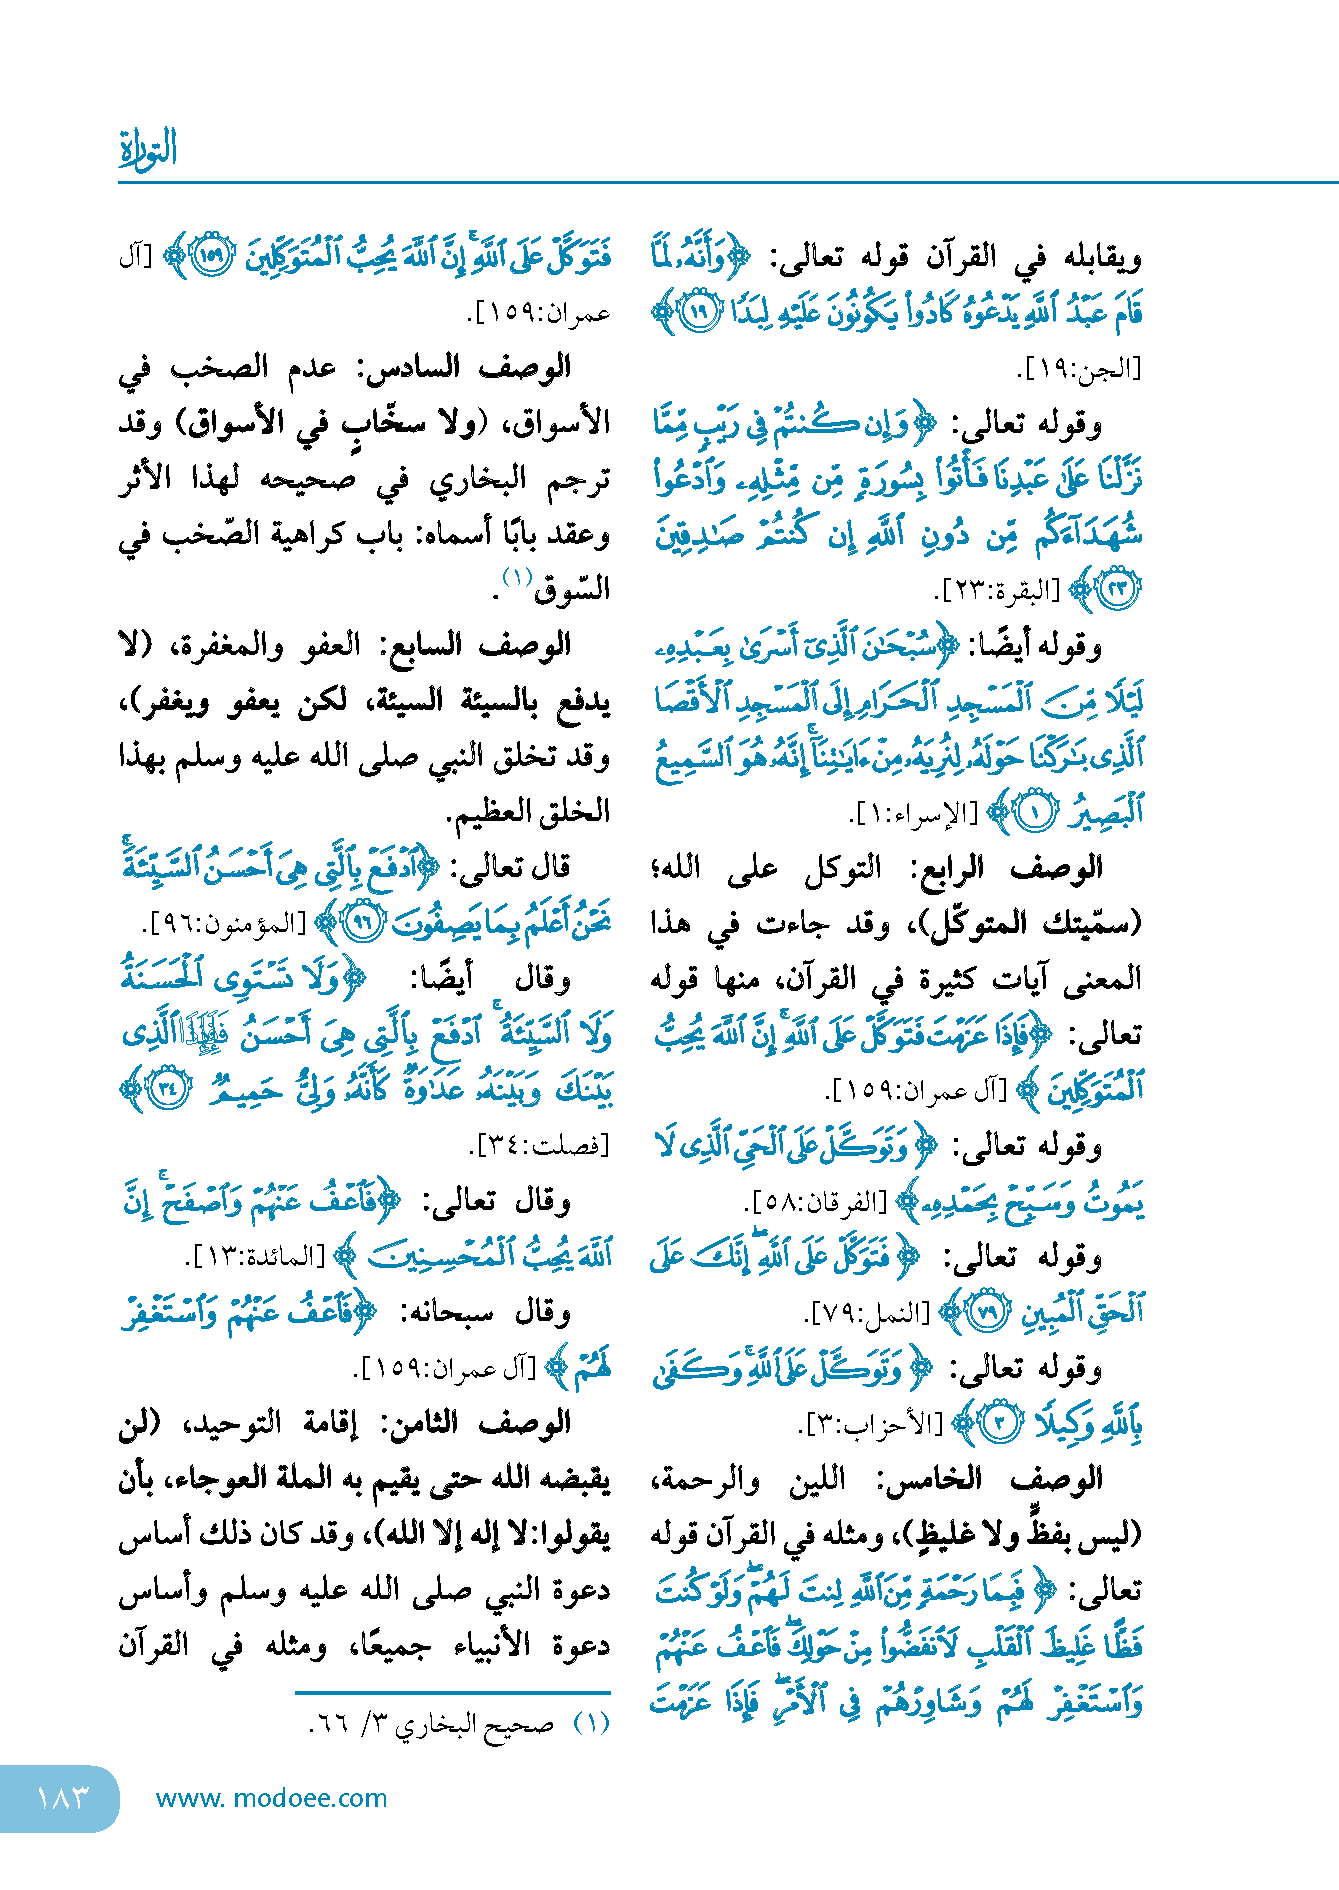 التوراة
ويقابله في القرآن قوله تعالى: ﴿وَأَنَّهُۥ لَمَّا
قَامَ عَبْدُ ٱللَّهِ يَدْعُوهُ كَادُوا۟ يَكُونُونَ عَلَيْهِ لِبَدًا ١٩﴾
[الجن:١٩].
وقوله تعالى: ﴿وَإِن كُنتُمْ فِى رَيْبٍ مِّمَّا
نَزَّلْنَا عَلَىٰ عَبْدِنَا فَأْتُوا۟ بِسُورَةٍ مِّن مِّثْلِهِۦ وَٱدْعُوا۟
شُهَدَآءَكُم مِّن دُونِ ٱللَّهِ إِن كُنتُمْ صَٰدِقِينَ
٢٣﴾ [البقرة:٢٣].
وقوله أيضًا: ﴿سُبْحَٰنَ ٱلَّذِىٓ أَسْرَىٰ بِعَبْدِهِۦ
لَيْلًا مِّنَ ٱلْمَسْجِدِ ٱلْحَرَامِ إِلَى ٱلْمَسْجِدِ ٱلْأَقْصَا
ٱلَّذِى بَٰرَكْنَا حَوْلَهُۥ لِنُرِيَهُۥ مِنْ ءَايَٰتِنَآ ۚ إِنَّهُۥ هُوَ ٱلسَّمِيعُ
ٱلْبَصِيرُ ١﴾ [الإسراء:١].
الوصف الرابع: التوكل على الله؛
(سمّيتك المتوكّل)، وقد جاءت في هذا
المعنى آيات كثيرة في القرآن، منها قوله
تعالى: ﴿فَإِذَا عَزَمْتَ فَتَوَكَّلْ عَلَى ٱللَّهِ ۚ إِنَّ ٱللَّهَ يُحِبُّ
ٱلْمُتَوَكِّلِينَ﴾ [آل عمران:١٥٩].
وقوله تعالى: ﴿وَتَوَكَّلْ عَلَى ٱلْحَىِّ ٱلَّذِى لَا
يَمُوتُ وَسَبِّحْ بِحَمْدِهِۦ﴾ [الفرقان:٥٨].
وقوله تعالى: ﴿فَتَوَكَّلْ عَلَى ٱللَّهِ ۖ إِنَّكَ عَلَى
ٱلْحَقِّ ٱلْمُبِينِ ٧٩﴾ [النمل:٧٩].
وقوله تعالى: ﴿وَتَوَكَّلْ عَلَى ٱللَّهِ ۚ وَكَفَىٰ
بِٱللَّهِ وَكِيلًا ٣﴾ [الأحزاب:٣].
الوصف الخامس: اللين والرحمة،
(ليس بفظٍّ ولا غليظٍ)، ومثله في القرآن قوله
تعالى: ﴿فَبِمَا رَحْمَةٍ مِّنَ ٱللَّهِ لِنتَ لَهُمْ ۖ وَلَوْ كُنتَ
فَظًّا غَلِيظَ ٱلْقَلْبِ لَٱنفَضُّوا۟ مِنْ حَوْلِكَ ۖ فَٱعْفُ عَنْهُمْ
وَٱسْتَغْفِرْ لَهُمْ وَشَاوِرْهُمْ فِى ٱلْأَمْرِ ۖ فَإِذَا عَزَمْتَ
فَتَوَكَّلْ عَلَى ٱللَّهِ ۚ إِنَّ ٱللَّهَ يُحِبُّ ٱلْمُتَوَكِّلِينَ ١٥٩﴾ [آل
عمران:١٥٩].
الوصف السادس: عدم الصخب في
الأسواق، (ولا سخّابٍ في الأسواق) وقد
ترجم البخاري في صحيحه لهذا الأثر
وعقد بابًا أسماه: باب كراهية الصّخب في
السّوق(١).
الوصف السابع: العفو والمغفرة، (لا
يدفع بالسيئة السيئة، لكن يعفو ويغفر)،
وقد تخلق النبي صلى الله عليه وسلم بهذا
الخلق العظيم.
قال تعالى: ﴿ٱدْفَعْ بِٱلَّتِى هِىَ أَحْسَنُ ٱلسَّيِّئَةَ ۚ
نَحْنُ أَعْلَمُ بِمَا يَصِفُونَ ٩٦﴾ [المؤمنون:٩٦].
وقال أيضًا: ﴿وَلَا تَسْتَوِى ٱلْحَسَنَةُ
وَلَا ٱلسَّيِّئَةُ ۚ ٱدْفَعْ بِٱلَّتِى هِىَ أَحْسَنُ فَإِذَا ٱلَّذِى
بَيْنَكَ وَبَيْنَهُۥ عَدَٰوَةٌ كَأَنَّهُۥ وَلِىٌّ حَمِيمٌ ٣٤﴾
[فصلت:٣٤].
وقال تعالى: ﴿فَٱعْفُ عَنْهُمْ وَٱصْفَحْ ۚ إِنَّ
ٱللَّهَ يُحِبُّ ٱلْمُحْسِنِينَ﴾ [المائدة:١٣].
وقال سبحانه: ﴿فَٱعْفُ عَنْهُمْ وَٱسْتَغْفِرْ
لَهُمْ﴾ [آل عمران:١٥٩].
الوصف الثامن: إقامة التوحيد، (لن
يقبضه الله حتى يقيم به الملة العوجاء، بأن
يقولوا:لا إله إلا الله)، وقد كان ذلك أساس
دعوة النبي صلى الله عليه وسلم وأساس
دعوة الأنبياء جميعًا، ومثله في القرآن
(١) صحيح البخاري ٣/ ٦٦.
١٨٣
www. modoee.com